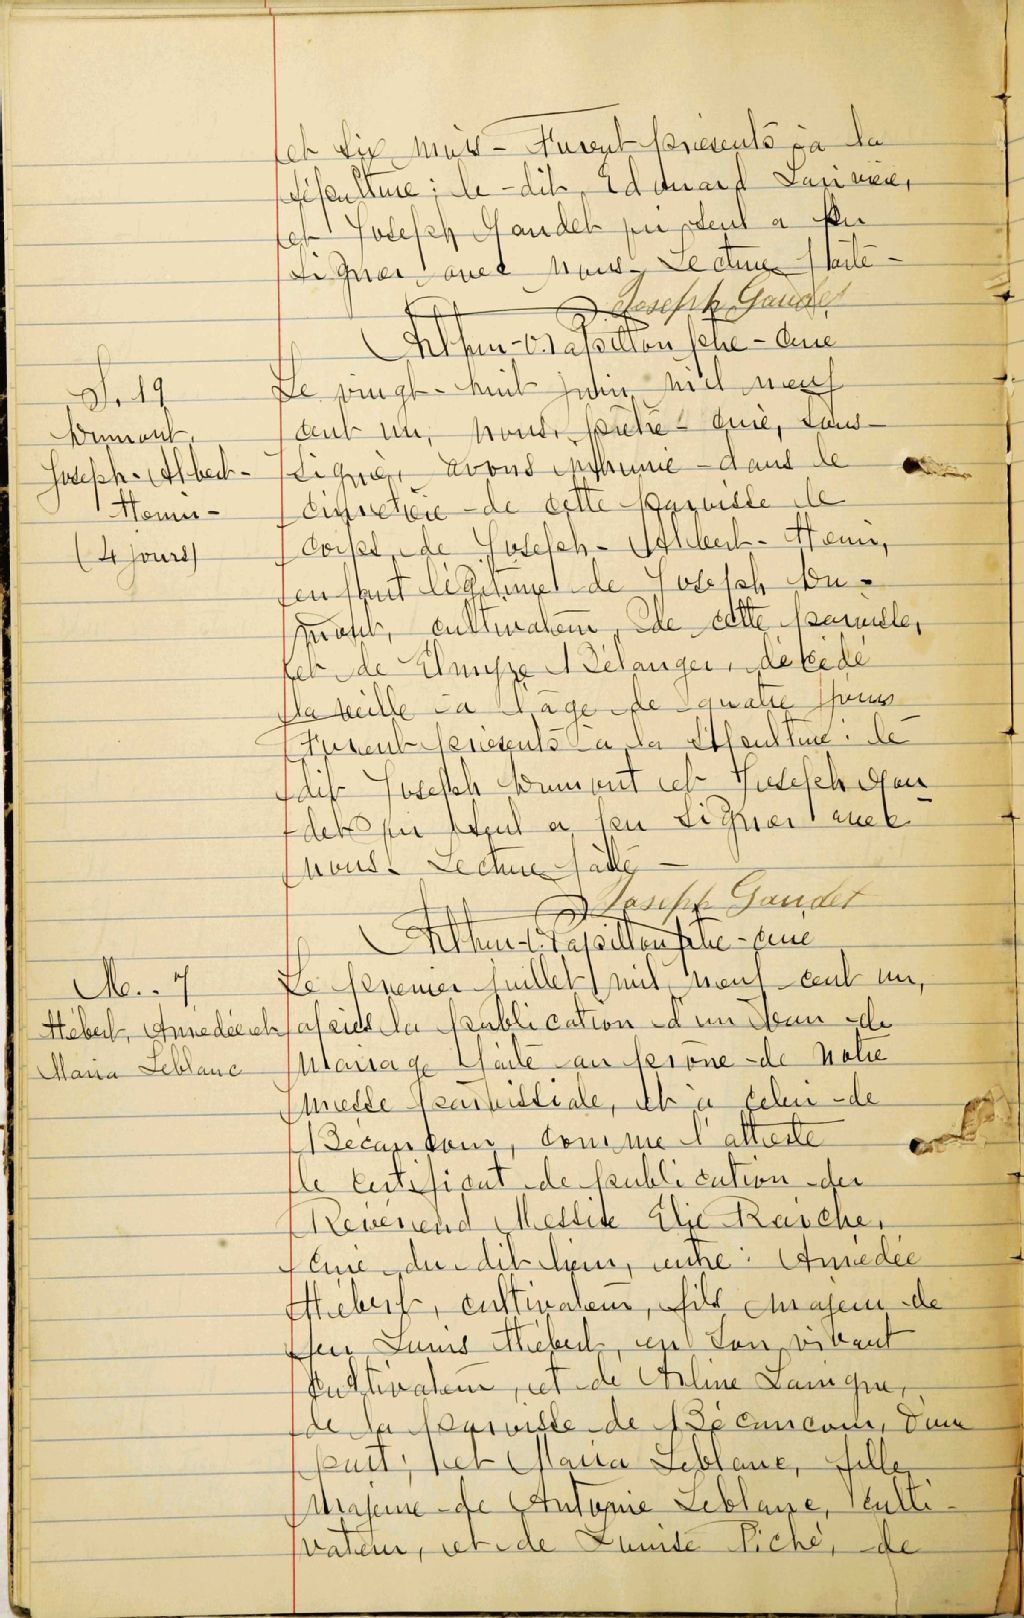 et six mois - Furent présents à la
sépulture; le-dit Edouard Larivière,
et Joseph Gaudet qui seul a pu
signer avec nous. Lecture faite -
Joseph Gaudet
Arthur-O. Papillon ptre-curé
S. 19
Dumont,
Joseph-Albert-
Henri-
(4 jours)
Le vingt-huit juin mil neuf
cent un, nous, prêtre-curé, sous-
signé, avons inhumé dans le
cimetière de cette paroisse le
corps de Joseph-Albert-Henri,
enfant légitime de Joseph Du-
mont, cultivateur, de cette paroisse,
et de Elmyre Bélanger, décédé
la veille à l'âge de quatre jours
Furent présents à la sépulture: le
dit Joseph Dumont et Joseph Gau
det qui seul a pu signer avec
nous. Lecture faite -
Joseph Gaudet
Arthur-O. Papillon ptre-curé
M. . 7
Hébert, Amédée et
Maria Leblanc
Le premier juillet mil neuf cent un,
après la publication d'un ban de
mariage faite au prône de notre
messe paroissiale, et à celui de
Bécancour, comme l'atteste
le certificat de publication du
Révérend Messire Elie Raiche,
curé du dit lieu, entre: Amédée
Hébert, cultivateur, fils majeur de
feu Louis Hébert, en son vivant
cultivateur, et de Arline Lavigne,
de la paroisse de Bécancour, d'une
part; et Maria Leblanc, fille
majeure de Antoine Leblanc, culti-
vateur, et de Louise Piché, de